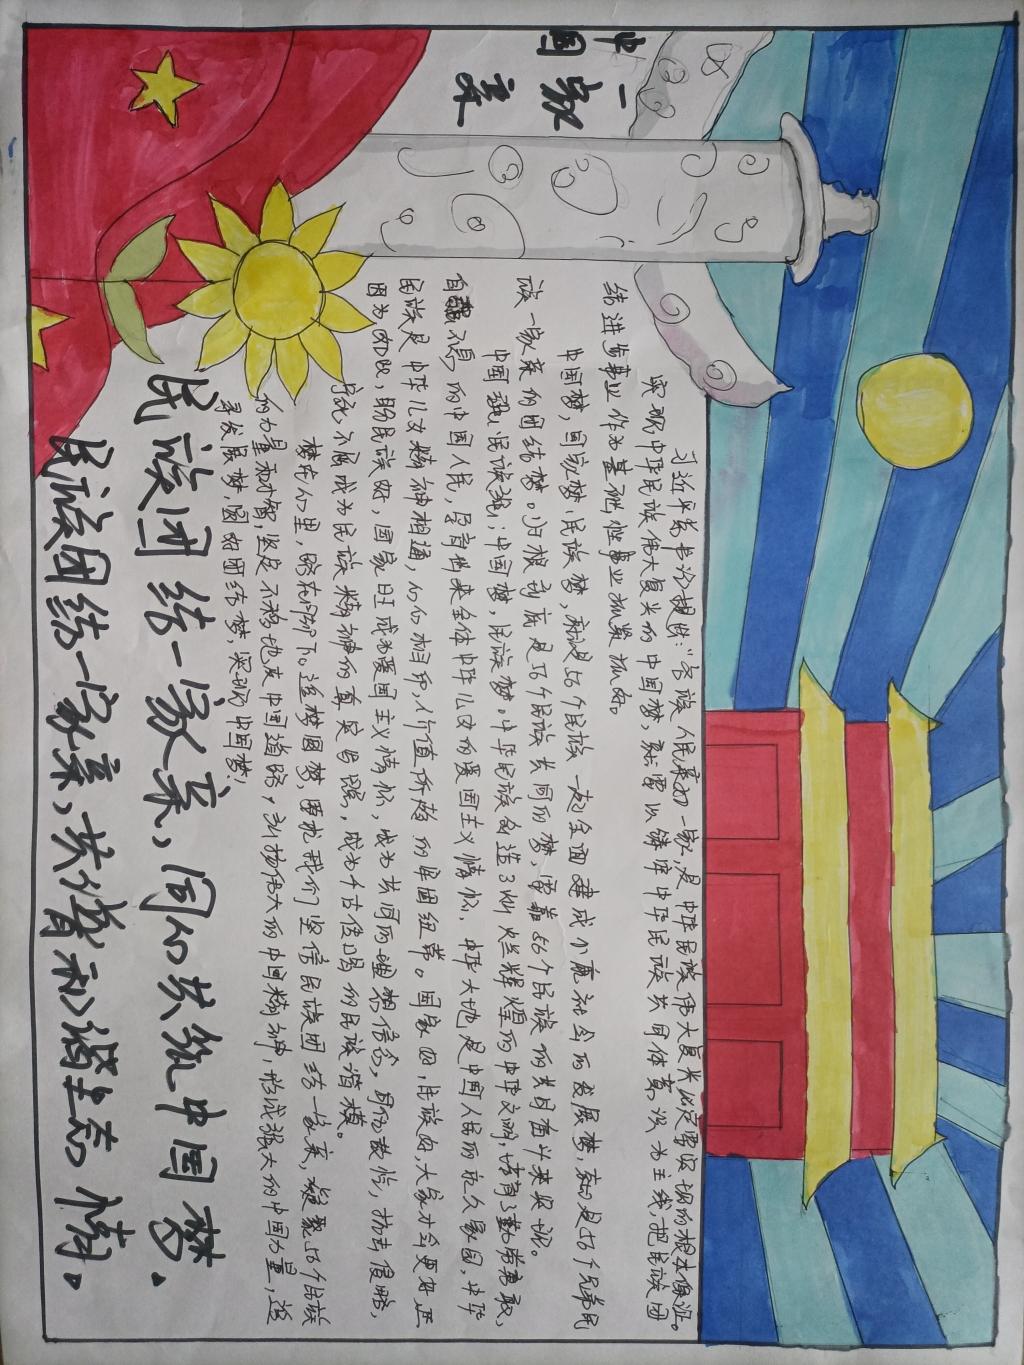 中国
一家
亲
习近平总书记提出：“各族人民亲如一家，是中华民族伟大复兴必定要实现的根本保证。
实现中华民族伟大复兴的中国梦，就要以铸牢中华民族共同体意识为主线，把民族团
结进步事业作为基础性事业抓紧抓好。
中国梦，国家梦，民族梦，就是56个民族一起全面建成小康社会的发展梦，就是56个兄弟民
族一家亲的团结梦。归根到底是56个民族共同的梦，要靠56个民族的共同奋斗来实现。
中国强，民族强；中国梦，民族梦。中华民族创造了灿烂辉煌的中华文明，培育了勤劳勇敢，
自强不息的中国人民，孕育出来全体中华儿女的爱国主义情怀，中华大地是中国人民的永久家园，中华
民族是中华儿女精神相通，心心相印，价值所趋的牢固纽带。国家因，民族好，大家才会更好正
因为如此，盼民族好，国家旺成为爱国主义情怀，成为共同的理想信念。同仇敌忾，抗击侵略，
宁死不屈成为民族精神的真实写照，成为千古传唱的民族楷模。
梦在心里，路在脚下。追梦圆梦，要求我们坚信民族团结一家亲，凝聚56个民族
的力量和智，坚定不移地走中国道路，弘扬伟大的中国精神，形成强大的中国力量，追
寻发展梦，圆好团结梦，实现中国梦！
民族团结一家亲，同心共筑中国梦。
民族团结一家亲，共谱和谐生态情。